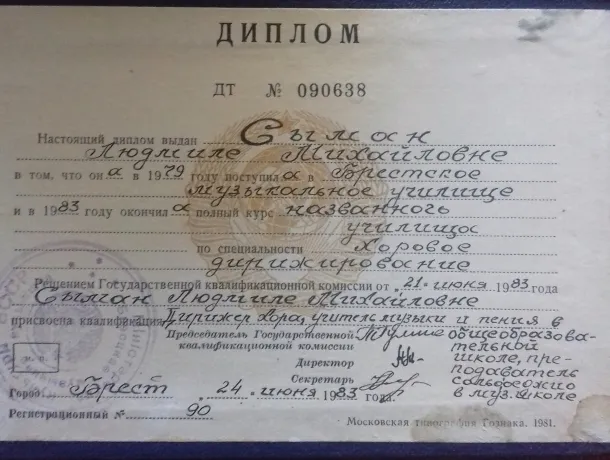 ДИПЛОМ
ДТ № 090638
Настоящий диплом выдан Сыман
Людмиле Михайловне
в том, что она в 1979 году поступила в Брестское
музыкальное училище
и в 1983 году окончила полный курс названного
училища
по специальности Хоровое
дирижирование
Решением Государственной квалификационной комиссии от „21" июня 1983 года
Сыман Людмиле Михайловне
присвоена квалификация Дирижер хора, учитель музыки и пения в
Председатель Государственной общеобразова-
квалификационной комиссии тельной
Директор школе, пре-
подаватель
Секретарь сольфеджио
в муз. школе
М. П.
Город Брест „24" июня 1983 года.
Регистрационный № 90
Московская типография Гознака. 1981.